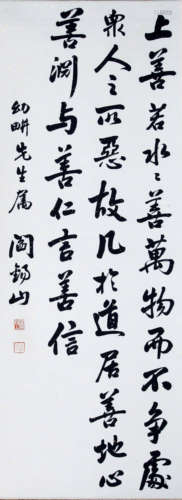 上善若水〻善萬物而不争處
衆人之所惡故凡於道居善地心
善淵与善仁言善信
幼畊先生属 閻錫山